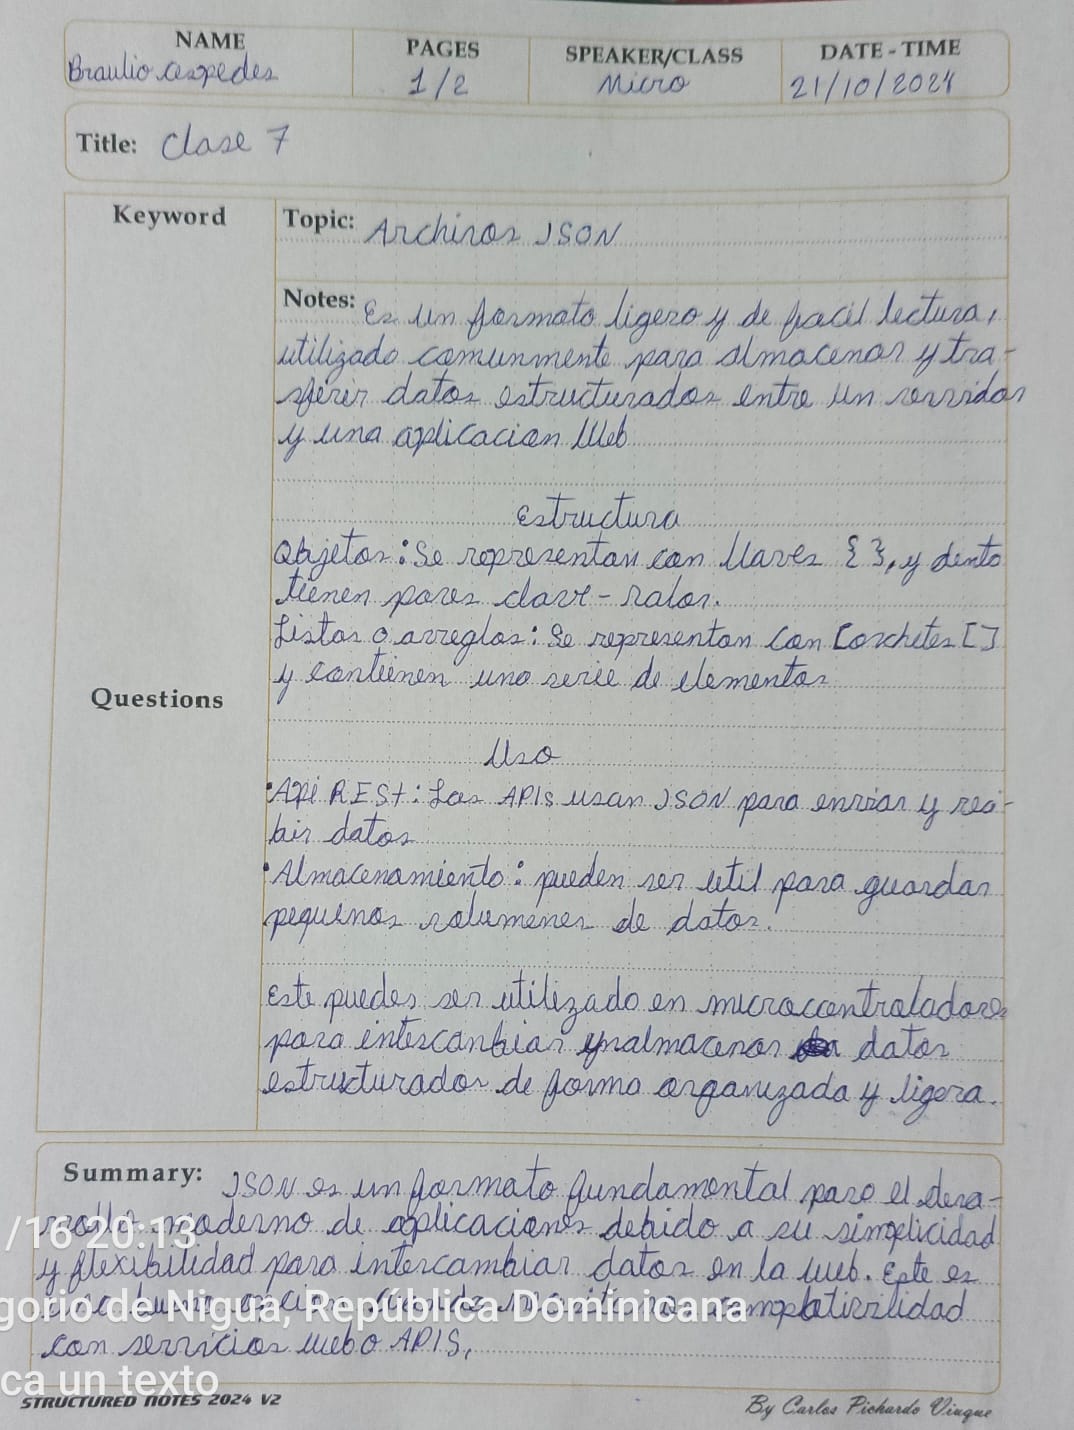 NAME PAGES SPEAKER/CLASS DATE - TIME
Braulio cespedes 1/2 Micro 21/10/2024
Title: Clase 7
Keyword Topic: Archivos JSON
Notes: Es un formato ligero y de facil lectura,
utilizado comunmente para almacenar y tra-
sferir datos estructurados entre un servidor
y una aplicacion Web
Estructura
Objetos: Se representan con llaves { }, y dento
tienen pares clave-valor.
Listas o arreglos: Se representan con Corchetes []
y contienen una serie de elementos
Questions
Uso
•Api REST: Las APIs usan JSON para enviar y reci-
bir datos
•Almacenamiento: pueden ser util para guardar
pequenos volumenes de datos.
Este puedes ser utilizado en microcontroladores
para intercanbiar almacenar datos
estructurados de forma organizada y ligera.
Summary: JSON es un formato fundamental para el desa-
rrollo moderno de aplicaciones debido a su simplicidad
/16 20:13
y flexibilidad para intercambiar datos en la web. Este es
una buena opcion cuando compatibilidad
gorio de Nigua, República Dominicana
con servicios web o APIS.
ca un texto
STRUCTURED NOTES 2024 V2 By Carlos Pichardo Viuque